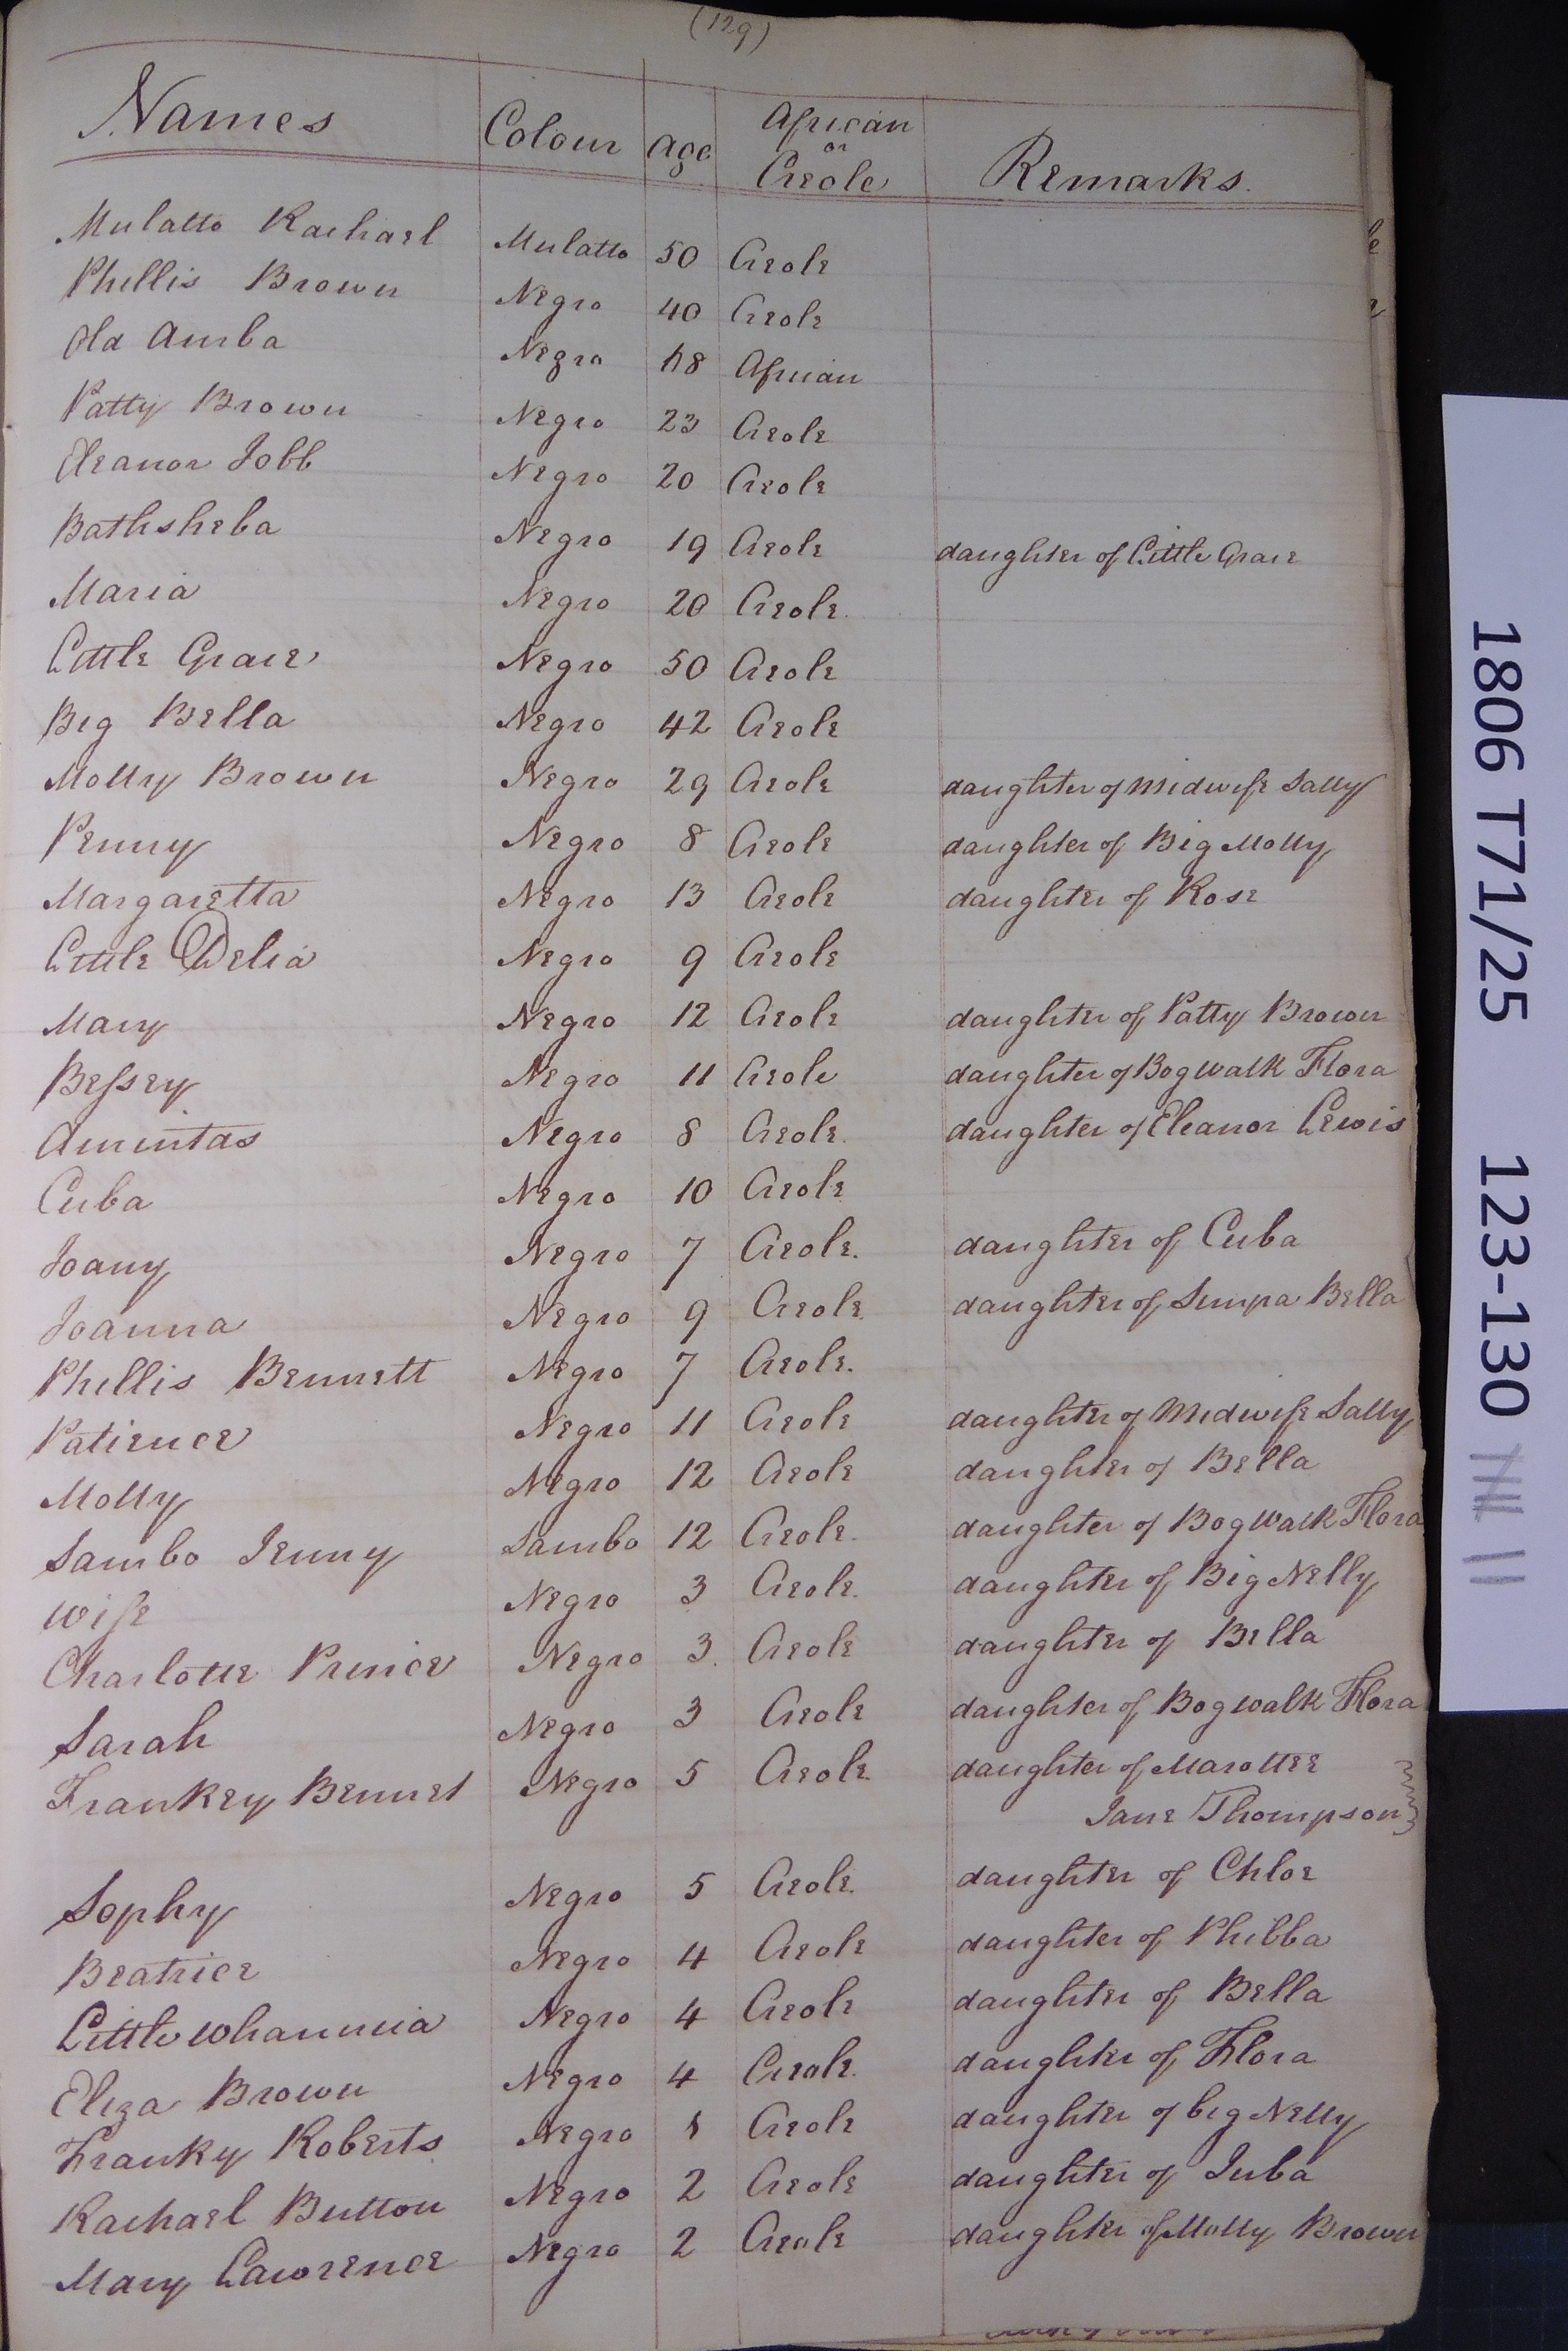 (129)
Names Colour Age African or Creole Remarks.
Mulatto Rachael Mulatto 50 Creole
Phillis Brown Negro 40 Creole
Old Amba Negro 48 African
Patty Brown Negro 23 Creole
Eleanor Jobb Negro 20 Creole
Bathsheba Negro 19 Creole daughter of Little Grace
Maria Negro 20 Creole.
Little Grace Negro 50 Creole
Big Bella Negro 42 Creole
Molly Brown Negro 29 Creole daughter of Midwife Sally
Penny Negro 8 Creole daughter of Big Molly
Margaretta Negro 13 Creole daughter of Rose
Little Delia Negro 9 Creole
Mary Negro 12 Creole daughter of Patty Brown
Bessey Negro 11 Creole daughter of Bogwalk Flora
Amintas Negro 8 Creole. daughter of Eleanor Lewis
Cuba Negro 10 Creole
Joany Negro 7 Creole. daughter of Cuba
Joanna Negro 9 Creole. daughter of Bella
Phillis Bennett Negro 7 Creole.
Patience Negro 11 Creole daughter of Midwife Sally
Molly Negro 12 Creole daughter of Bella
Sambo Jenny Sambo 12 Creole. daughter of Bogwalk Flora
Wife Negro 3 Creole. daughter of Big Nelly
Charlotte Prince Negro 3. Creole daughter of Bella
Sarah Negro 3 Creole daughter of Bogwalk Flora
Frankey Bennet Negro 5 Creole. daughter of
Jane Thompson
Sophy Negro 5 Creole. daughter of Chloe
Beatrice Negro 4 Creole daughter of Phibba
Little Whannica Negro 4 Creole daughter of Bella
Eliza Brown Negro 4 Creole. daughter of Flora
Franky Roberts Negro 1 Creole daughter of big Nelly
Rachael Button Negro 2 Creole daughter of Juba
Mary Lawrence Negro 2 Creole daughter of Molly Brown
1806 T71/25 123-130